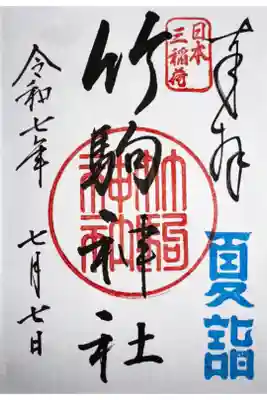 奉拝
日本
三稲荷
竹駒神社
竹駒
神社
夏詣
令和七年
七月七日